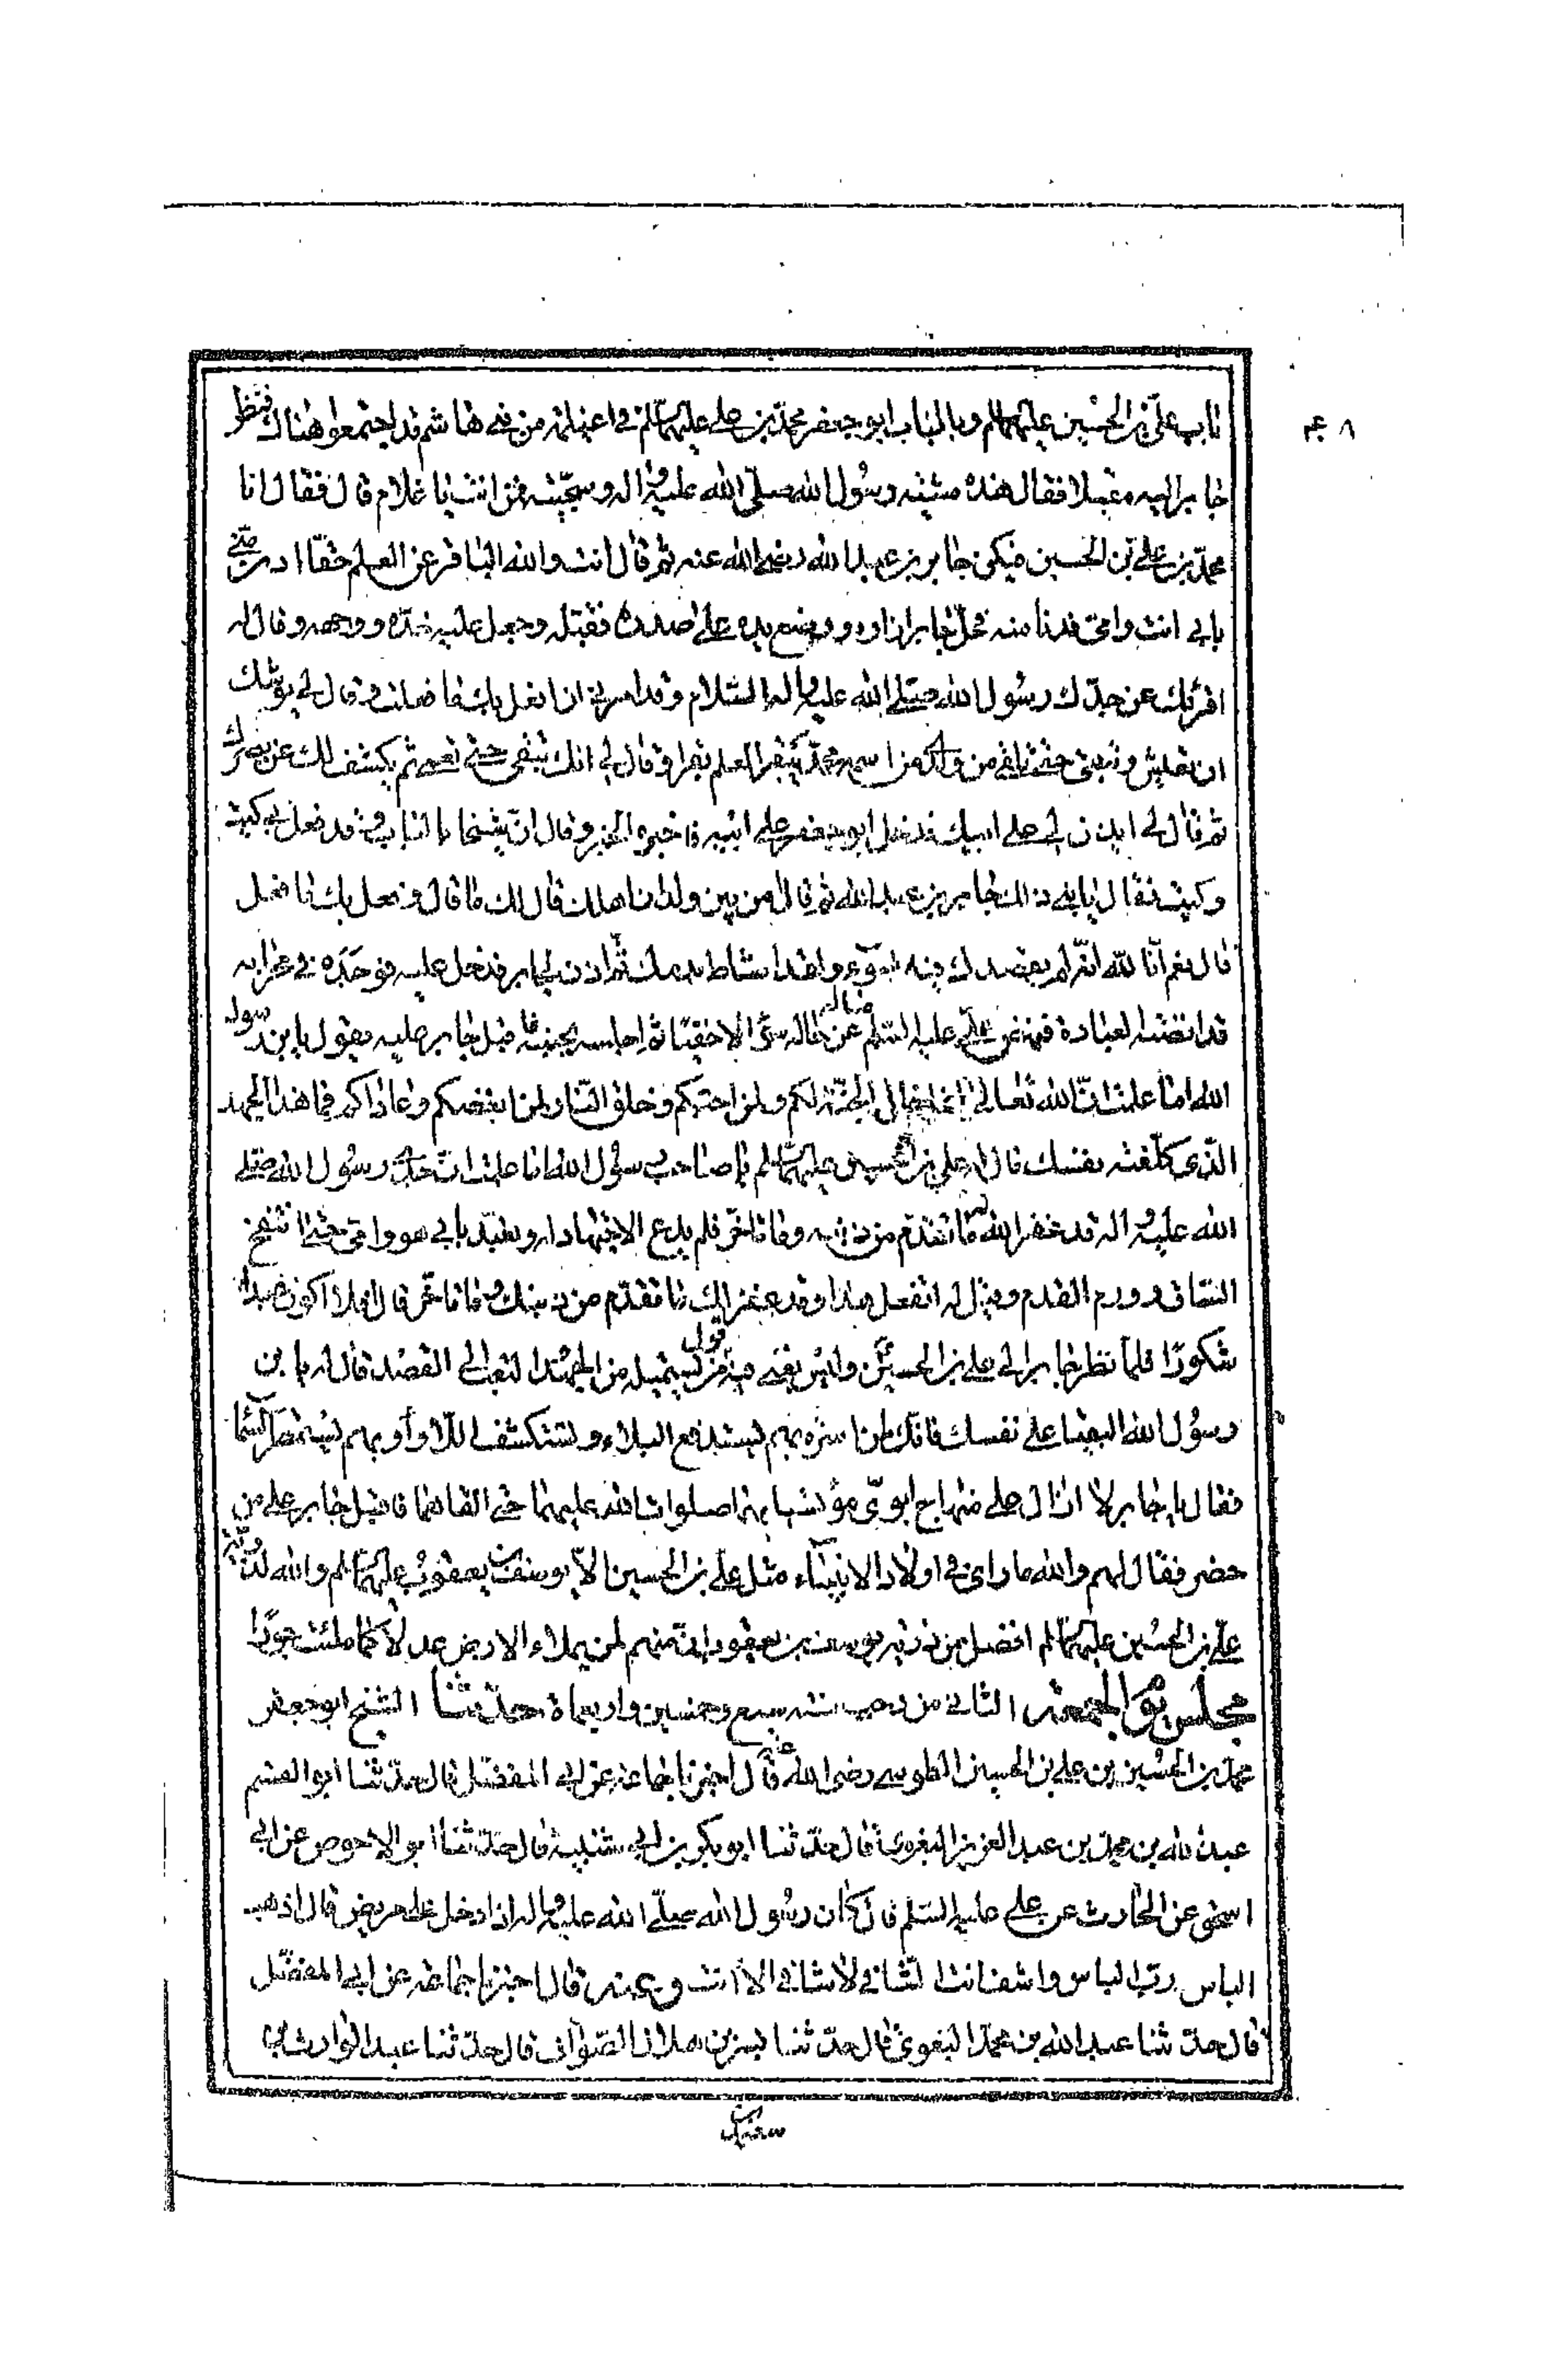 باب علي بن الحسين عليهما السلم وبالباب ابو جعفر محمد بن علي عليهما السلم في اغيلمة من بني هاشم قد اجتمعوا هناك فنظر
جابر اليه مقبلا فقال هذه مشية رسول الله صلى الله عليه واله وسجيته فمن انت يا غلام قال فقال انا
محمد بن علي بن الحسين فبكى جابر بن عبد الله رضي الله عنه ثم قال انت والله الباقر عن العلم حقا ادن مني
بابي انت وامي فدنا منه فحل جابر ازاره ووضع يده على صدره فقبله وجعل عليه خده ووجهه وقال له
اقرئك عن جدك رسول الله صلى الله عليه واله السلام وقد امرني ان افعل بك ما فعلت وقال لي يوشك
ان تعيش وتبقى حتى تلقى من ولدي من اسمه محمد يبقر العلم بقرا وقال لي انك تبقى حتى تعمى ثم يكشف لك عن بصرك
ثم قال لي ائذن لي على ابيك فدخل ابو جعفر على ابيه فاخبره الخبر وقال ان شيخا بالباب وقد فعل بي كيت
وكيت فقال يا بني ذلك جابر بن عبد الله ثم قال من بين ولدان اهلك قال لك ما قال وفعل بك ما فعل
قال نعم انا لله انه لم يقصدك فيه بسوء ولقد اشاط بدمك ثم اذن لجابر فدخل عليه فوجده في محرابه
قد انضته العبادة فنهض علي عليه السلم عن حاله سؤالا حفيا ثم اجلسه بجنبه فاقبل جابر عليه يقول يا بن رسول
الله اما علمت ان الله تعالى انما خلق الجنة لكم ولمن احبكم وخلق النار لمن ابغضكم وعاداكم فما هذا الجهد
الذي كلفته نفسك قال له علي بن الحسين عليهما السلم يا صاحب رسول الله اما علمت ان جدي رسول الله صلى
الله عليه واله قد غفر الله له ما تقدم من ذنبه وما تاخر فلم يدع الاجتهاد له وتعبد بابي هو وامي حتى انتفخ
الساق وورم القدم وقيل له اتفعل هذا وقد غفر لك ما تقدم من ذنبك وما تاخر قال افلا اكون عبدا
شكورا فلما نظر جابر الى علي بن الحسين وليس يغني فيه من قول يستميله من الجهد والتعب الى القصد قال له يا بن
رسول الله البقيا على نفسك فانك لمن اسرة بهم يستدفع البلاء وتستكشف اللاواء وبهم يستمطر السماء
فقال يا جابر لا ازال على منهاج ابوي مؤتسيا بهما صلوات الله عليهما حتى القاهما فاقبل جابر على من
حضر فقال لهم والله ما راى في اولاد الانبياء مثل علي بن الحسين الا يوسف بن يعقوب عليهما السلم والله لذرية
علي بن الحسين عليهما السلم افضل من ذرية يوسف بن يعقوب ان منهم لمن يملاء الارض عدلا كما ملئت جورا
مجلس يوم الجمعة الثاني من رجب سنة سبع وخمسين واربعماة حدثنا الشيخ ابو جعفر
محمد بن الحسين بن علي بن الحسين الطوسي رضي الله عنه قال اخبرنا جماعة عن ابي المفضل قال حدثنا ابو القسم
عبد الله بن محمد بن عبد العزيز البغوي قال حدثنا ابو بكر بن ابي شيبة قال حدثنا ابو الاحوص عن ابي
اسحق عن الحارث عن علي عليه السلم قال كان رسول الله صلى الله عليه واله اذا دخل على مريض قال اذهب
الباس رب الباس واشف انت الشافي لا شافي الا انت وعنه قال اخبرنا جماعة عن ابي المفضل
قال حدثنا عبد الله بن محمد البغوي قال حدثنا بشر بن هلال الصواف قال حدثنا عبد الوارث بن
سعيد